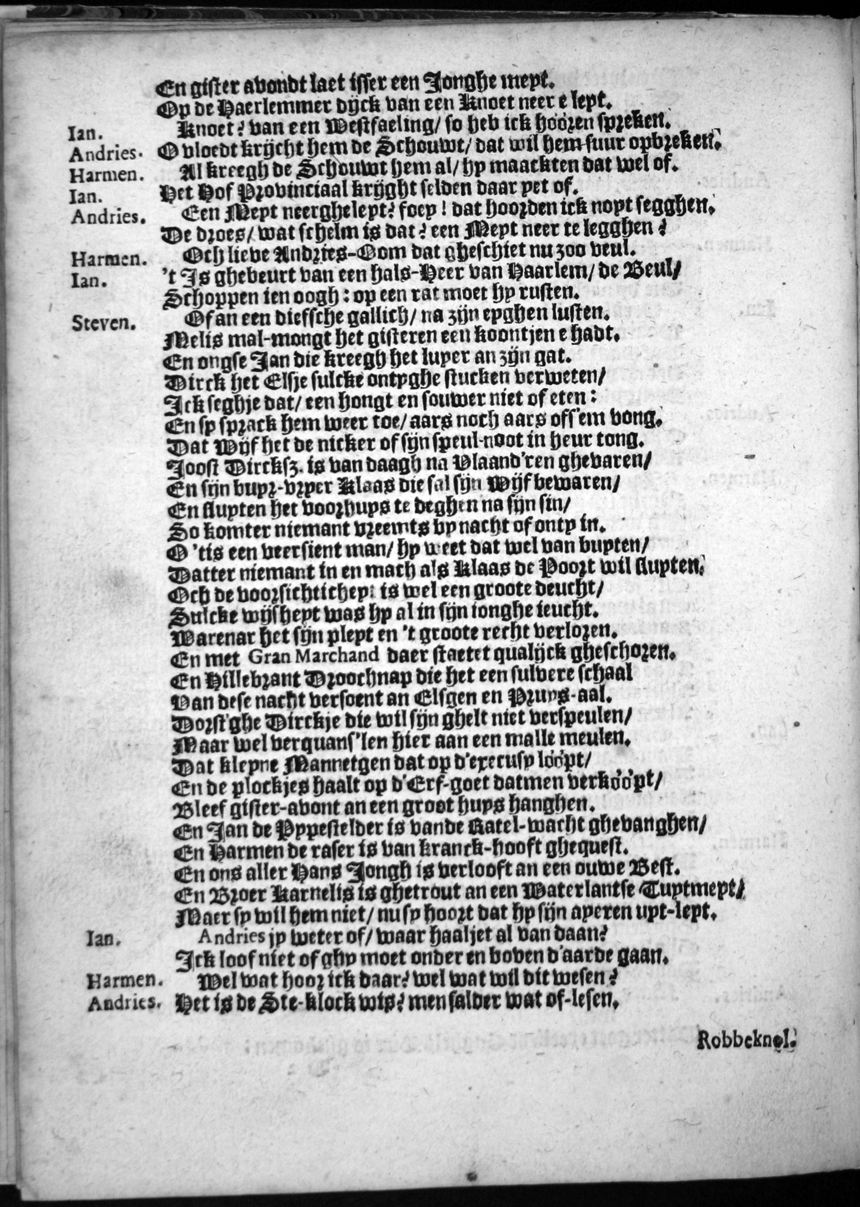 En gister avondt laet isser een Jonghe meyt.
Op de Haerlemmer dijck van een Knoet neer e leyt.
Ian. Knoet? van een Westfaeling/ so heb ick hooren spreken.
Andries. O vloedt krijcht hem de Schouwt/ dat wil hem suur opbreken.
Harmen. Al kreegh de Schouwt hem al/ hy maackten dat wel of.
Ian. Het Hof Provinciaal krijght selden daar yet of.
Andries. Een Meyt neerghelept? foey! dat hoorden ick noyt segghen.
De droes/ wat schelm is dat? een Meyt neer te legghen?
Harmen. Och lieve Andries-Oom dat gheschiet nu zoo veul.
Ian. 't Is ghebeurt van een hals-Heer van Haarlem/ de Beul/
Schoppen ien oogh: op een rat moet hy rusten.
Steven. Of an een diefsche gallich/ na zijn eyghen lusten.
Melis mal-mongt het gisteren een koontjen e hadt.
En ongse Jan die kreegh het luyer an zijn gat.
Dirck het Elsje sulcke ontyghe stucken verweten/
Ick seghje dat/ een hongt en souwer niet of eten:
En sy sprack hem weer toe/ aars noch aars off'em vong.
Dat Wijf het de nicker of sijn speul-noot in heur tong.
Joost Dircksz. is van daagh na Vlaand'ren ghevaren/
En sijn buyr-vryer Klaas die sal sijn Wijf bewaren/
En sluyten het voorhuys te deghen na sijn sin/
So komter niemant vreemts by nacht of onty in.
O 'tis een veersient man/ hy weet dat wel van buyten/
Datter niemant in en mach als Klaas de Poort wil sluyten.
Och de voorsichticheyt is wel een groote deucht/
Sulcke wijsheyt was hy al in sijn ionghe ieucht.
Warenar het sijn pleyt en 't groote recht verloren.
En met Gran Marchand daer staetet qualijck gheschoren.
En Hillebrant Droochnap die het een sulvere schaal
Van dese nacht versoent an Elsgen en Pruys-aal.
Dorst'ghe Dirckje die wil sijn ghelt niet verspeulen/
Maar wel verquans'len hier aan een malle meulen.
Dat kleyne Mannetgen dat op d'execusy loopt/
En de plockjes haalt op d'Erf-goet datmen verkoopt/
Bleef gister-avont an een groot huys hanghen.
En Jan de Pypestelder is vande Ratel-wacht ghevanghen/
En Harmen de raser is van kranck-hooft ghequest.
En ons aller Hans Jongh is verlooft an een ouwe Best.
En Broer Karnelis is ghetrout an een Waterlantse Tuytmeyt/
Maer sy wil hem niet/ nu sy hoort dat hy sijn aperen uyt-leyt.
Ian. Andries jy weter of/ waar haaljet al van daan?
Ick loof niet of ghy moet onder en boven d'aarde gaan.
Harmen. Wel wat hoor ick daar? wel wat wil dit wesen?
Andries. Het is de Ste-klock wis? men salder wat of-lesen.
Robbeknol.